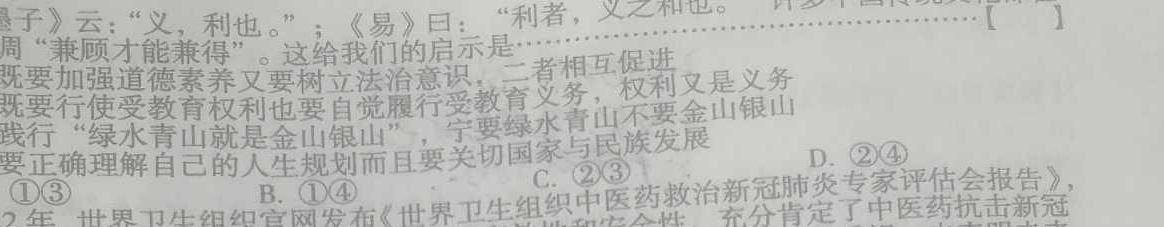 子》云：“义，利也。”；《易》曰：“利者，义之和也。”
周“兼顾才能兼得”。这给我们的启示是……………………………【　　】
既要加强道德素养又要树立法治意识，二者相互促进
既要行使受教育权利也要自觉履行受教育义务，权利又是义务
践行“绿水青山就是金山银山”，宁要绿水青山不要金山银山
要正确理解自己的人生规划而且要关切国家与民族发展
①③　B. ①④　C. ②③　D. ②④
2年，世界卫生组织官网发布《世界卫生组织中医药救治新冠肺炎专家评估会报告》，
和安全性，充分肯定了中医药抗击新冠